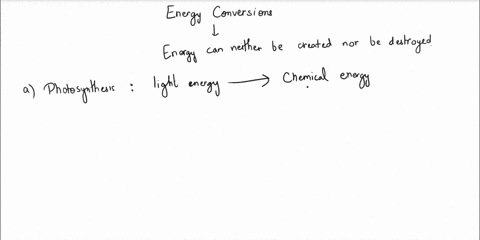 Energy Conversions
↓
Energy can neither be created nor be destroyed
a) Photosynthesis : light energy → Chemical energy